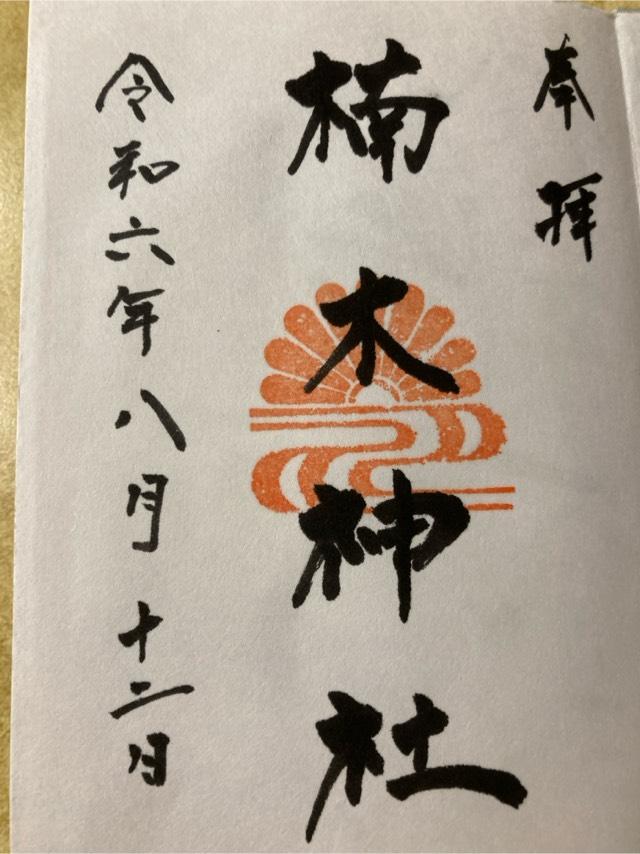 奉拝
楠木神社
令和六年八月十二日